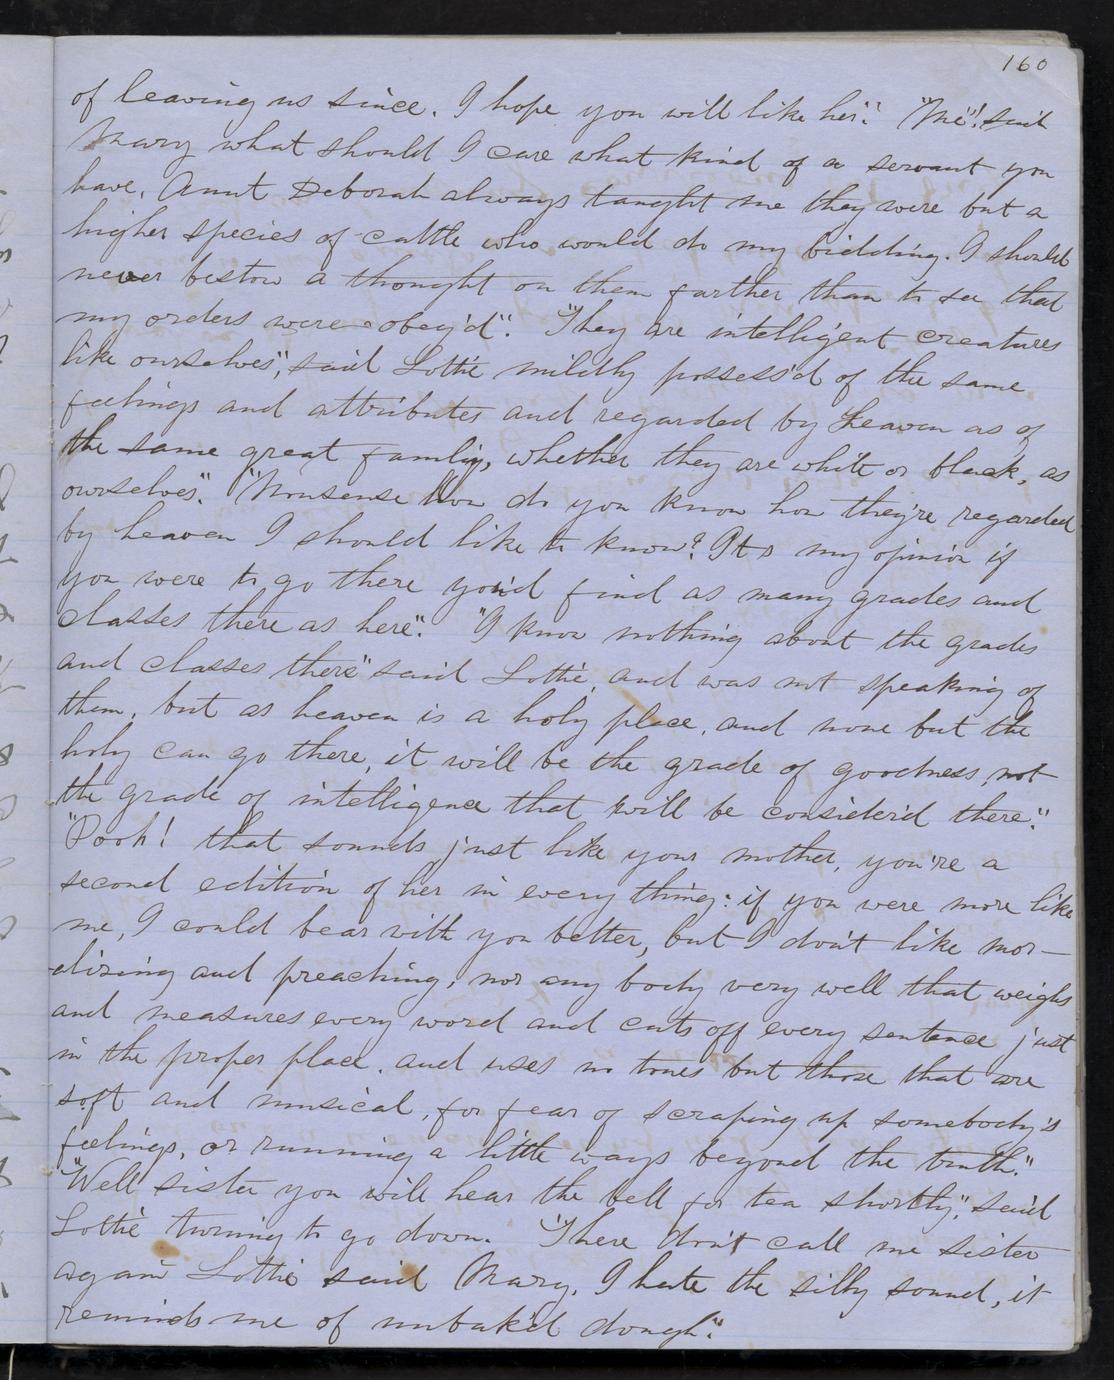 160
of leaving us since. I hope you will like her." "Me"! said
Mary what should I care what kind of a servant you
have. Aunt Deborah always taught me they were but a
higher species of cattle who would do my bidding. I should
never bestow a thought on them farther than to see that
my orders were obey'd". "They are intelligent creatures
like ourselves", said Lottie mildly possess'd of the same
feelings and attributes and regarded by Heaven as of
the same great family, whether they are white or black, as
ourselves". "Nonsense How do you know how they're regarded
by heaven I should like to know? Its my opinion if
you were to go there you'd find as many grades and
classes there as here". "I know nothing about the grades
and classes there" said Lottie, and was not speaking of
them, but as heaven is a holy place, and none but the
holy can go there, it will be the grade of goodness, not
the grade of intelligence that will be consider'd there."
"Pooh! that sounds just like your mother, you're a
second edition of her in every thing: if you were more like
me, I could bear with you better, but I don't like mor-
alizing and preaching, nor any body very well that weighs
and measures every word and cuts off every sentence just
in the proper place. and uses no tones but those that are
soft and musical, for fear of scraping up somebody's
feelings, or running a little ways beyond the truth."
"Well sister you will hear the bell for tea shortly", said
Lottie turning to go down. "There don't call me sister
again Lottie said Mary, I hate the silly sound, it
reminds me of unbak'd dough".